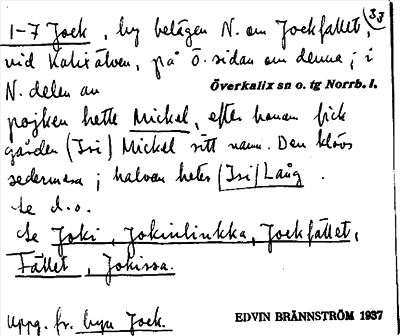 33
1-7 Jock, by belägen N. om Jockfallet,
vid Kalixälven, på Ö. sidan om denna; i
N. delen av
Överkalix sn o. tg Norrb. l.
pojken hette Mickel, efter honom fick
gården (Isi) Mickel sitt namn. Den klövs
sedermera; halvan heter (Isi) Lång.
Se d.o.
Se Joki, Jokinlinkka, Jockfället,
Fället, Jokissa.
Uppg. fr. byn Jock.
EDVIN BRÄNNSTRÖM 1937